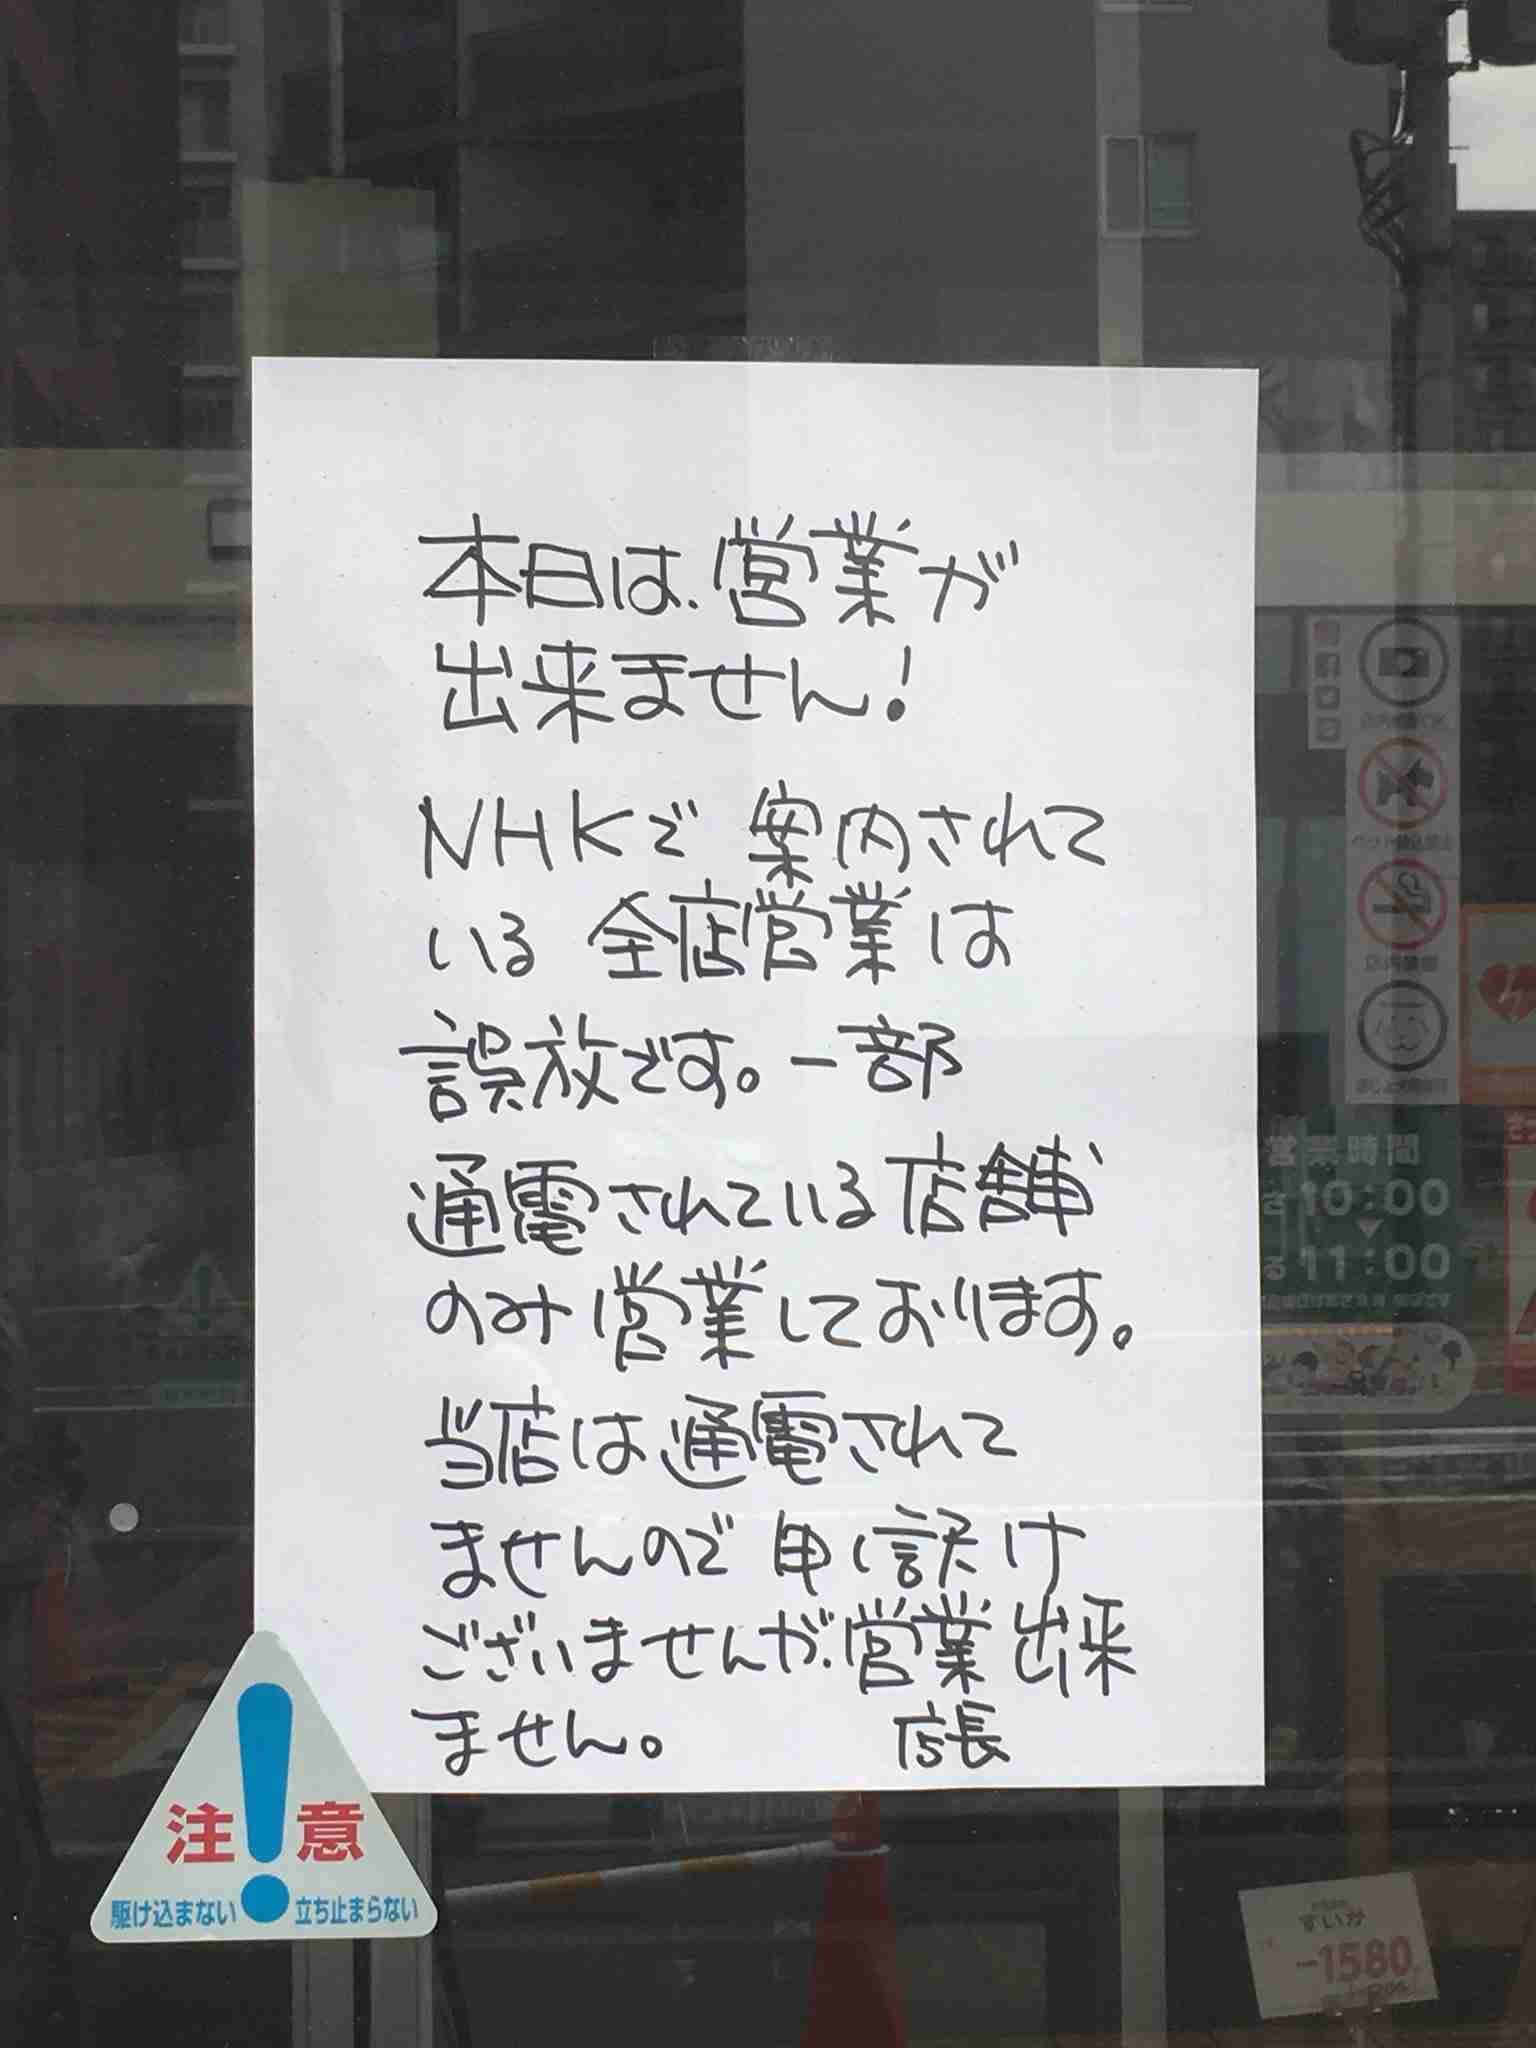 本日は、営業が
出来ません!
NHKで案内されて
いる 全店営業は
誤放です。一部
通電されている店舗
のみ営業しております。
当店は通電されて
ませんので申し訳け
ございませんが、営業出来
ません。 店長
注意
駆け込まない 立ち止まらない
営業時間
10:00
11:00
すいか
1580